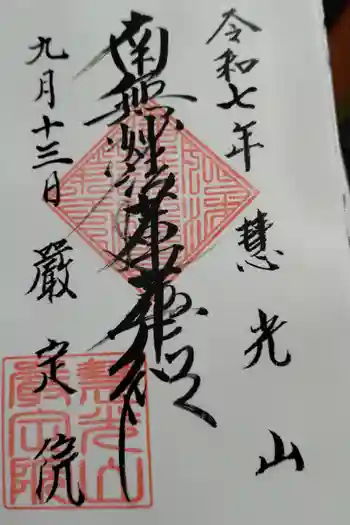 令和七年 慧光山
南無妙法蓮華経
九月十三日 嚴定院
慧光山
嚴定院